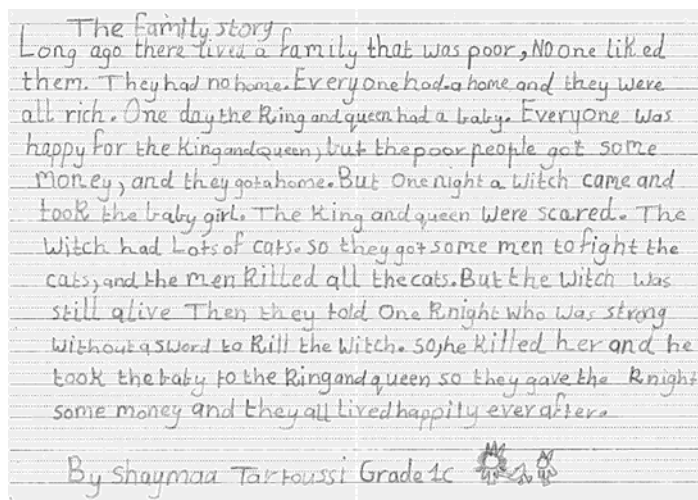 The family story
Long ago there lived a family that was poor, No one liked
them. They had no home. Everyone had a home and they were
all rich. One day the King and queen had a baby. Everyone was
happy for the King and Queen, but the poor people got some
money, and they got a home. But One night a Witch came and
took the baby girl. The King and queen Were scared. The
Witch had Lots of cats. so they got some men to fight the
cats, and the men Killed all the cats. But the Witch was
still alive Then they told One Knight who was strong
without a sword to Kill the Witch. So, he Killed her and he
took the baby to the King and queen so they gave the Knight
some money and they all lived happily ever after.
By Shaymaa Tartoussi Grade 1c